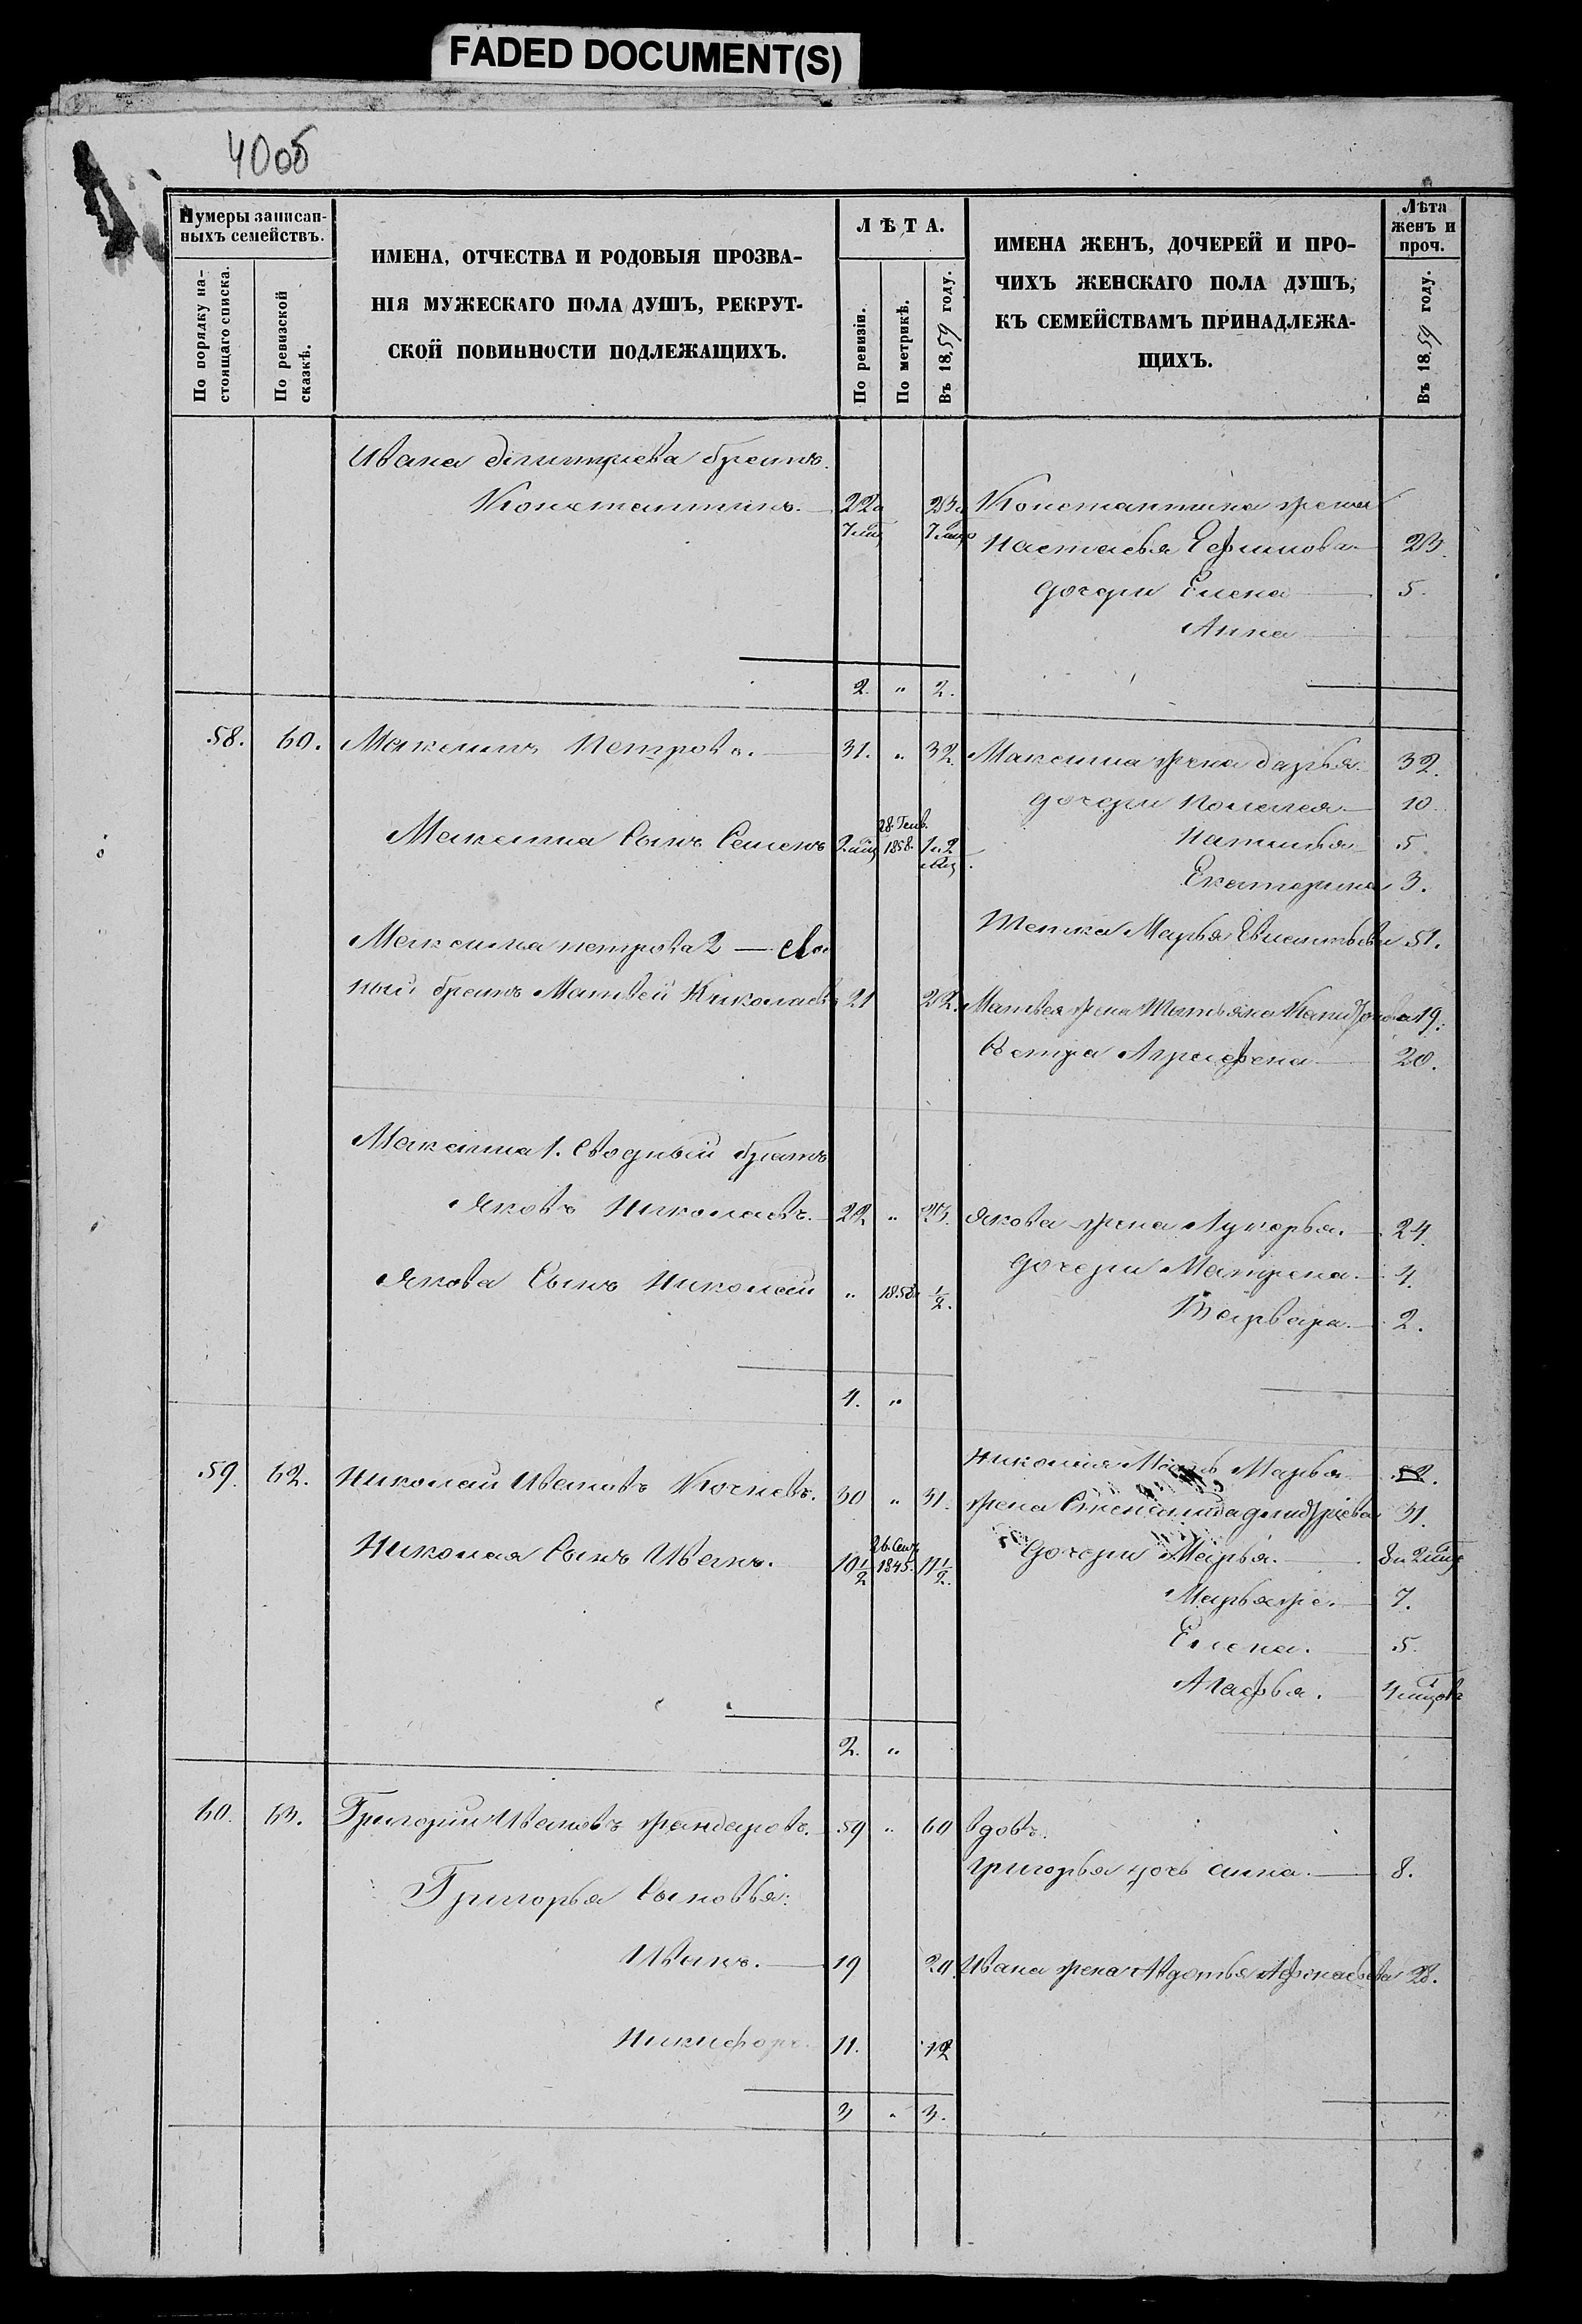 FADED DOCUMENT(S)
40об
Нумеры записан-
ныхъ семействъ.
По порядку на-
стоящаго списка.
По ревизской
сказкѣ.
ИМЕНА, ОТЧЕСТВА И РОДОВЫЯ ПРОЗВА-
НІЯ МУЖЕСКАГО ПОЛА ДУШЪ, РЕКРУТ-
СКОЙ ПОВИННОСТИ ПОДЛЕЖАЩИХЪ.
ЛѢТА.
По ревизіи.
По метрикѣ.
Въ 1859 году.
ИМЕНА ЖЕНЪ, ДОЧЕРЕЙ И ПРО-
ЧИХЪ ЖЕНСКАГО ПОЛА ДУШЪ,
КЪ СЕМЕЙСТВАМЪ ПРИНАДЛЕЖА-
ЩИХЪ.
Лѣта
женъ и
проч.
Въ 1859 году.
Ивана Димитриева братъ
Константинъ. 22 23 Константина жена
7 7 Настасья Ефимова 23.
дочери Елена 5.
Анна
2. " 2.
58. 60. Максимъ Петровъ. 31. " 32. Максима жена Дарья. 32.
дочери 10
28 Генв.
Максима сынъ Семенъ 1858. Наталья 5.
Екатерина 3.
Тетка Марья 51.
Максима Петрова 2 — сво
ный братъ Матвей Николаевъ 21 22. Матвея жена Татьяна 19.
Сестра Аграфена 20.
Максима 1. сводный братъ
Яковъ Николаевъ. 22 " 23. Якова жена Лукерья. 24.
дочери Матрена. 4.
Якова сынъ Николай " 1858. 1/2. Варвара. 2.
4. "
59. 62. Николай Ивановъ 30 " 31. Николая Мать Марья 52.
жена Степанида 31.
26. Сен.
Николая сынъ Иванъ. 10 1/2 1845. 11 1/2. Дочери Марья.
7.
Елена. 5.
Агафья.
2. "
60. 63. Григорий Ивановъ 59 " 60 вдовъ.
Григорья дочь Анна. 8.
Григорья сыновья:
Иванъ. 19 20 Ивана жена Авдотья 28.
Никифоръ. 11. 12
3 " 3.